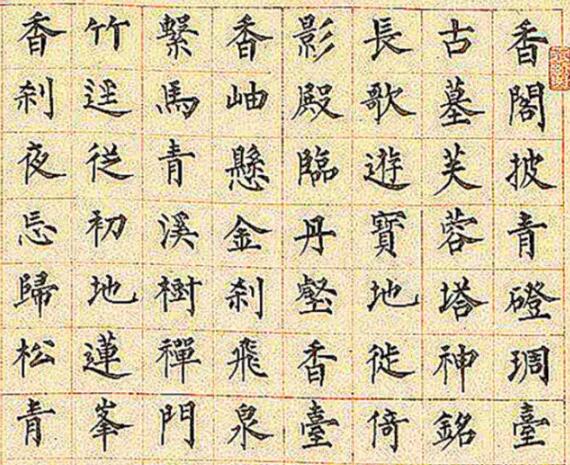 香閣披青磴琱臺
古墓芙蓉塔神銘
長歌遊寶地徙倚
影殿臨丹壑香臺
香岫懸金刹飛泉
繫馬青溪樹禪門
竹逕從初地蓮峯
香刹夜忘歸松青